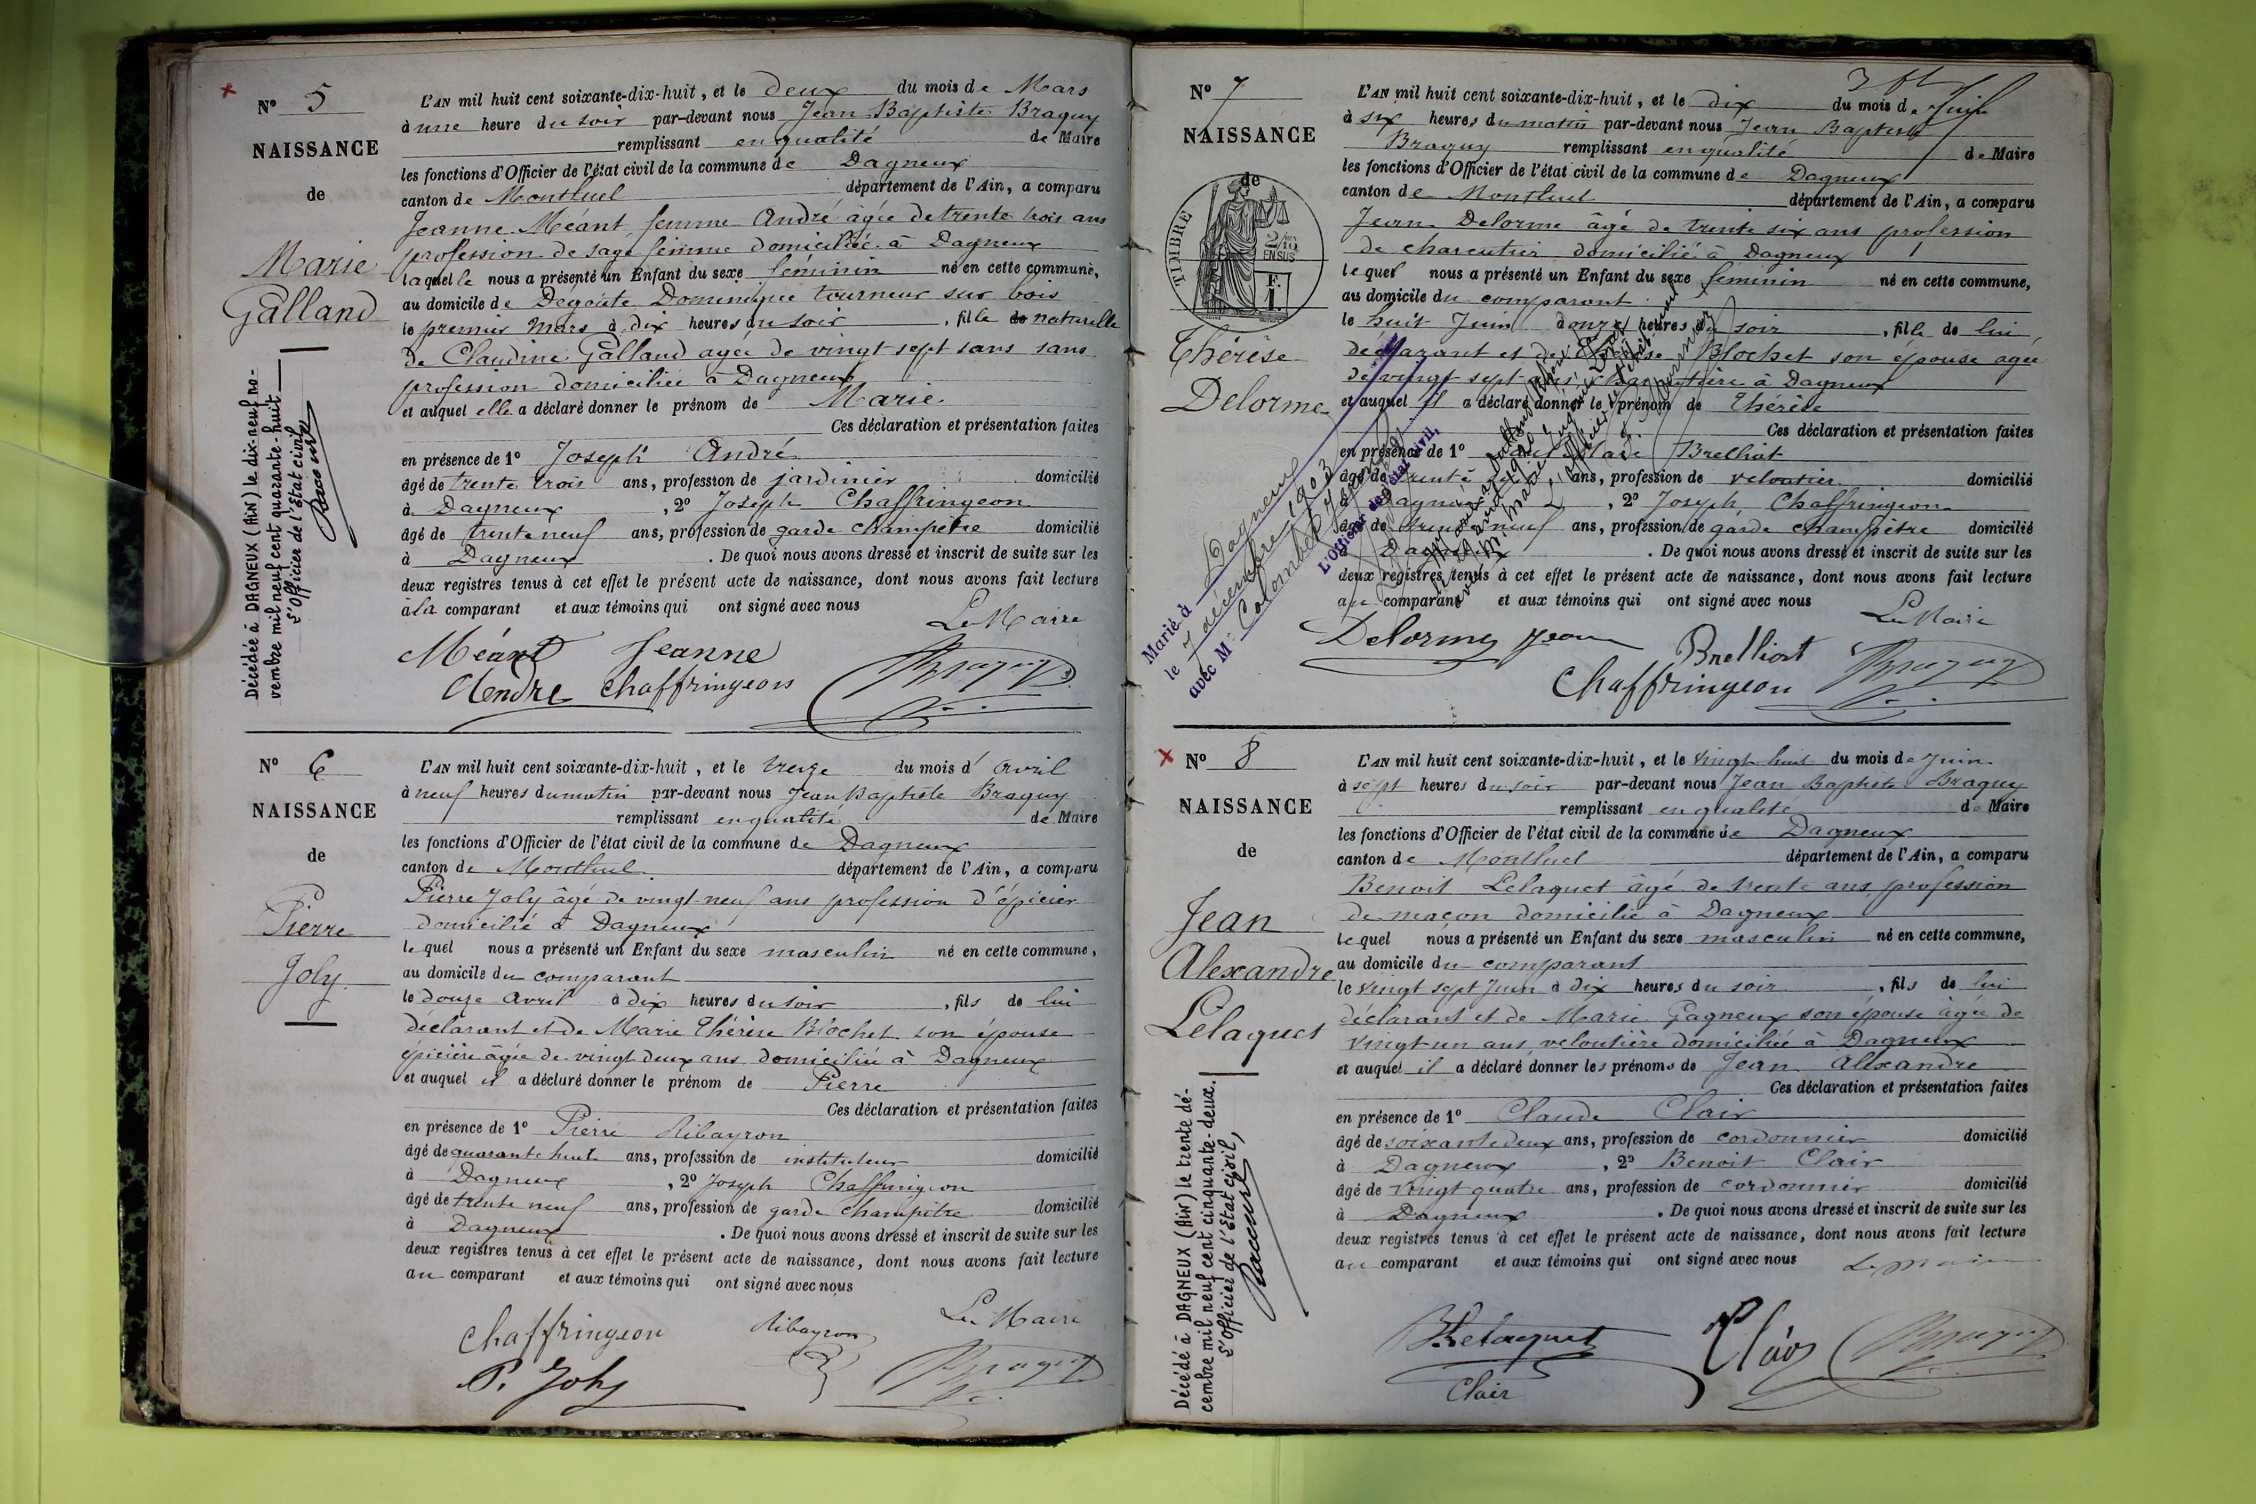 N° 5
NAISSANCE
de
Marie
Galland
Décédée à DAGNEUX (Ain) le dix-neuf no-
vembre mil neuf cent quarante-huit
L'Officier de l'État civil
L'AN mil huit cent soixante-dix-huit, et le deux du mois de Mars
à une heure du soir par-devant nous Jean Baptiste Braguy
remplissant en qualité de Maire
les fonctions d'Officier de l'état civil de la commune de Dagneux
canton de Montluel département de l'Ain, a comparu
Jeanne Méant femme André âgée de trente trois ans
profession de sage femme domiciliée à Dagneux
laquelle nous a présenté un Enfant du sexe féminin né en cette commune,
au domicile de Dominique tourneur sur bois
le premier Mars à dix heures du soir, fille de naturelle
de Claudine Galland agée de vingt sept sans sans
profession domiciliée à Dagneux
et auquel elle a déclaré donner le prénom de Marie
Ces déclaration et présentation faites
en présence de 1° Joseph André
âgé de trente trois ans, profession de jardinier domicilié
à Dagneux, 2° Joseph Chaffringeon
âgé de trente neuf ans, profession de garde champêtre domicilié
à Dagneux. De quoi nous avons dressé et inscrit de suite sur les
deux registres tenus à cet effet le présent acte de naissance, dont nous avons fait lecture
à la comparant et aux témoins qui ont signé avec nous
Le Maire
Méant Jeanne
André Chaffringeon Braguy
N° 6
NAISSANCE
de
Pierre
Joly
L'AN mil huit cent soixante-dix-huit, et le treize du mois d'avril
à neuf heures du matin par-devant nous Jean Baptiste Braguy
remplissant en qualité de Maire
les fonctions d'Officier de l'état civil de la commune de Dagneux
canton de Montluel département de l'Ain, a comparu
Pierre Joly âgé de vingt neuf ans profession d'épicier
domicilié à Dagneux
lequel nous a présenté un Enfant du sexe masculin né en cette commune,
au domicile du comparant
le douze avril à dix heures du soir, fils de lui
déclarant et de Marie Thérèse Blochet son épouse
épicière âgée de vingt deux ans domiciliée à Dagneux
et auquel il a déclaré donner le prénom de Pierre
Ces déclaration et présentation faites
en présence de 1° Pierre Ribayron
âgé de quarante huit ans, profession de instituteur domicilié
à Dagneux, 2° Joseph Chaffringeon
âgé de trente neuf ans, profession de garde champêtre domicilié
à Dagneux. De quoi nous avons dressé et inscrit de suite sur les
deux registres tenus à cet effet le présent acte de naissance, dont nous avons fait lecture
au comparant et aux témoins qui ont signé avec nous
Le Maire
Chaffringeon Ribayron
P. Joly Braguy
N° 7
NAISSANCE
de
TIMBRE
2/10
EN SUS
F.
1.
Thérèse
Delorme
Marié à Dagneux
le 7 décembre 1903
avec Mr Colomb
L'Officier de l'état civil,
L'AN mil huit cent soixante-dix-huit, et le dix du mois de Juin
à six heures du matin par-devant nous Jean Baptiste
Braguy remplissant en qualité de Maire
les fonctions d'Officier de l'état civil de la commune de Dagneux
canton de Montluel département de l'Ain, a comparu
Jean Delorme âgé de trente six ans profession
de charcutier domicilié à Dagneux
lequel nous a présenté un Enfant du sexe féminin né en cette commune,
au domicile du comparant
le huit Juin à onze heures du soir, fille de lui
déclarant et de Blochet son épouse agée
de vingt sept ans à Dagneux
et auquel il a déclaré donner le prénom de Thérèse
Ces déclaration et présentation faites
en présence de 1° Brelliat
âgé de trente ans, profession de veloutier domicilié
à Dagneux, 2° Joseph Chaffringeon
âgé de trente neuf ans, profession de garde champêtre domicilié
à Dagneux. De quoi nous avons dressé et inscrit de suite sur les
deux registres tenus à cet effet le présent acte de naissance, dont nous avons fait lecture
au comparant et aux témoins qui ont signé avec nous
Le Maire
Delorme Jean Brelliat
Chaffringeon Braguy
N° 8
NAISSANCE
de
Jean
Alexandre
Lelaquet
Décédé à DAGNEUX (Ain) le trente dé-
cembre mil neuf cent cinquante-deux.
L'Officier de l'État civil,
L'AN mil huit cent soixante-dix-huit, et le vingt huit du mois de Juin
à sept heures du soir par-devant nous Jean Baptiste Braguy
remplissant en qualité de Maire
les fonctions d'Officier de l'état civil de la commune de Dagneux
canton de Montluel département de l'Ain, a comparu
Benoit Lelaquet âgé de trente ans profession
de maçon domicilié à Dagneux
lequel nous a présenté un Enfant du sexe masculin né en cette commune,
au domicile du comparant
le vingt sept Juin à dix heures du soir, fils de lui
déclarant et de Marie Gagneux son épouse âgée de
vingt un ans veloutière domiciliée à Dagneux
et auquel il a déclaré donner les prénoms de Jean Alexandre
Ces déclaration et présentation faites
en présence de 1° Claude Clair
âgé de soixante deux ans, profession de cordonnier domicilié
à Dagneux, 2° Benoit Clair
âgé de vingt quatre ans, profession de cordonnier domicilié
à Dagneux. De quoi nous avons dressé et inscrit de suite sur les
deux registres tenus à cet effet le présent acte de naissance, dont nous avons fait lecture
au comparant et aux témoins qui ont signé avec nous
Le Maire
B. Lelaquet Clair Braguy
Clair